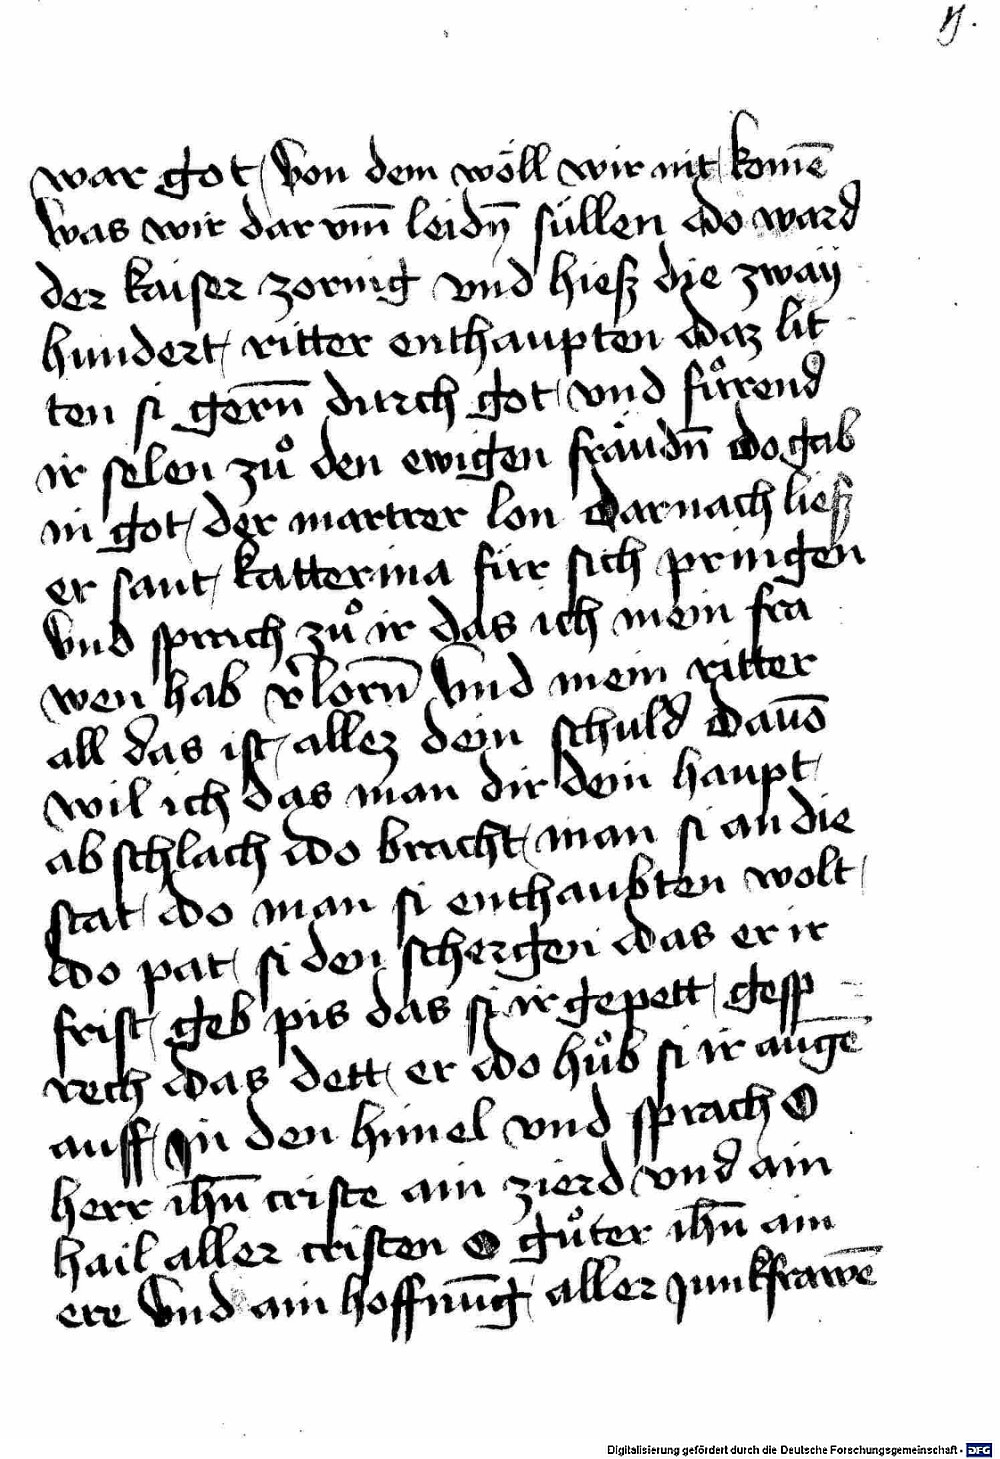 ij.
war got / Von dem wöll wir nit / komē
Was wir dar vm̄ leidn̄ süllen Do ward
der kaiser zornig vnd hieß die zwaÿ
hundert / ritter enthaupten Daz lit
ten si gern̄ durch got / vnd fůrend
ir selen zů den ewigen fräudn̄ Do gab
in got / der martrer lon Darnach ließ
er sant / katterina für sich pringen
Vnd sprach zů ir das ich mein fra
wen hab v̄lorn̄ Vnd mein ritter
all das ist / allez dein schuld Dauō
wil ich das man dir dein haupt /
ab schlach Do bracht / man si an die
stat / do man si enthaubten wolt /
Do pat / si den schergen das er ir
frist / geb pis das si ir gepett / gesp
rech Das dett / er Do hůb si ir augē
auff / In den himel vnd sprach O
herr ihn̄ criste ain zierd vnd ain
hail aller cristen O gůter ihn̄ ain
ere Vnd ain hoffnūg / aller junkfrawē
Digitalisierung gefördert durch die Deutsche Forschungsgemeinschaft - DFG